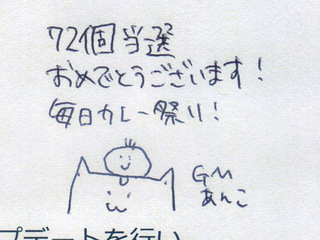 72個当選
おめでとうございます!
毎日カレー祭り!
GM
あんこ
プデートを行い